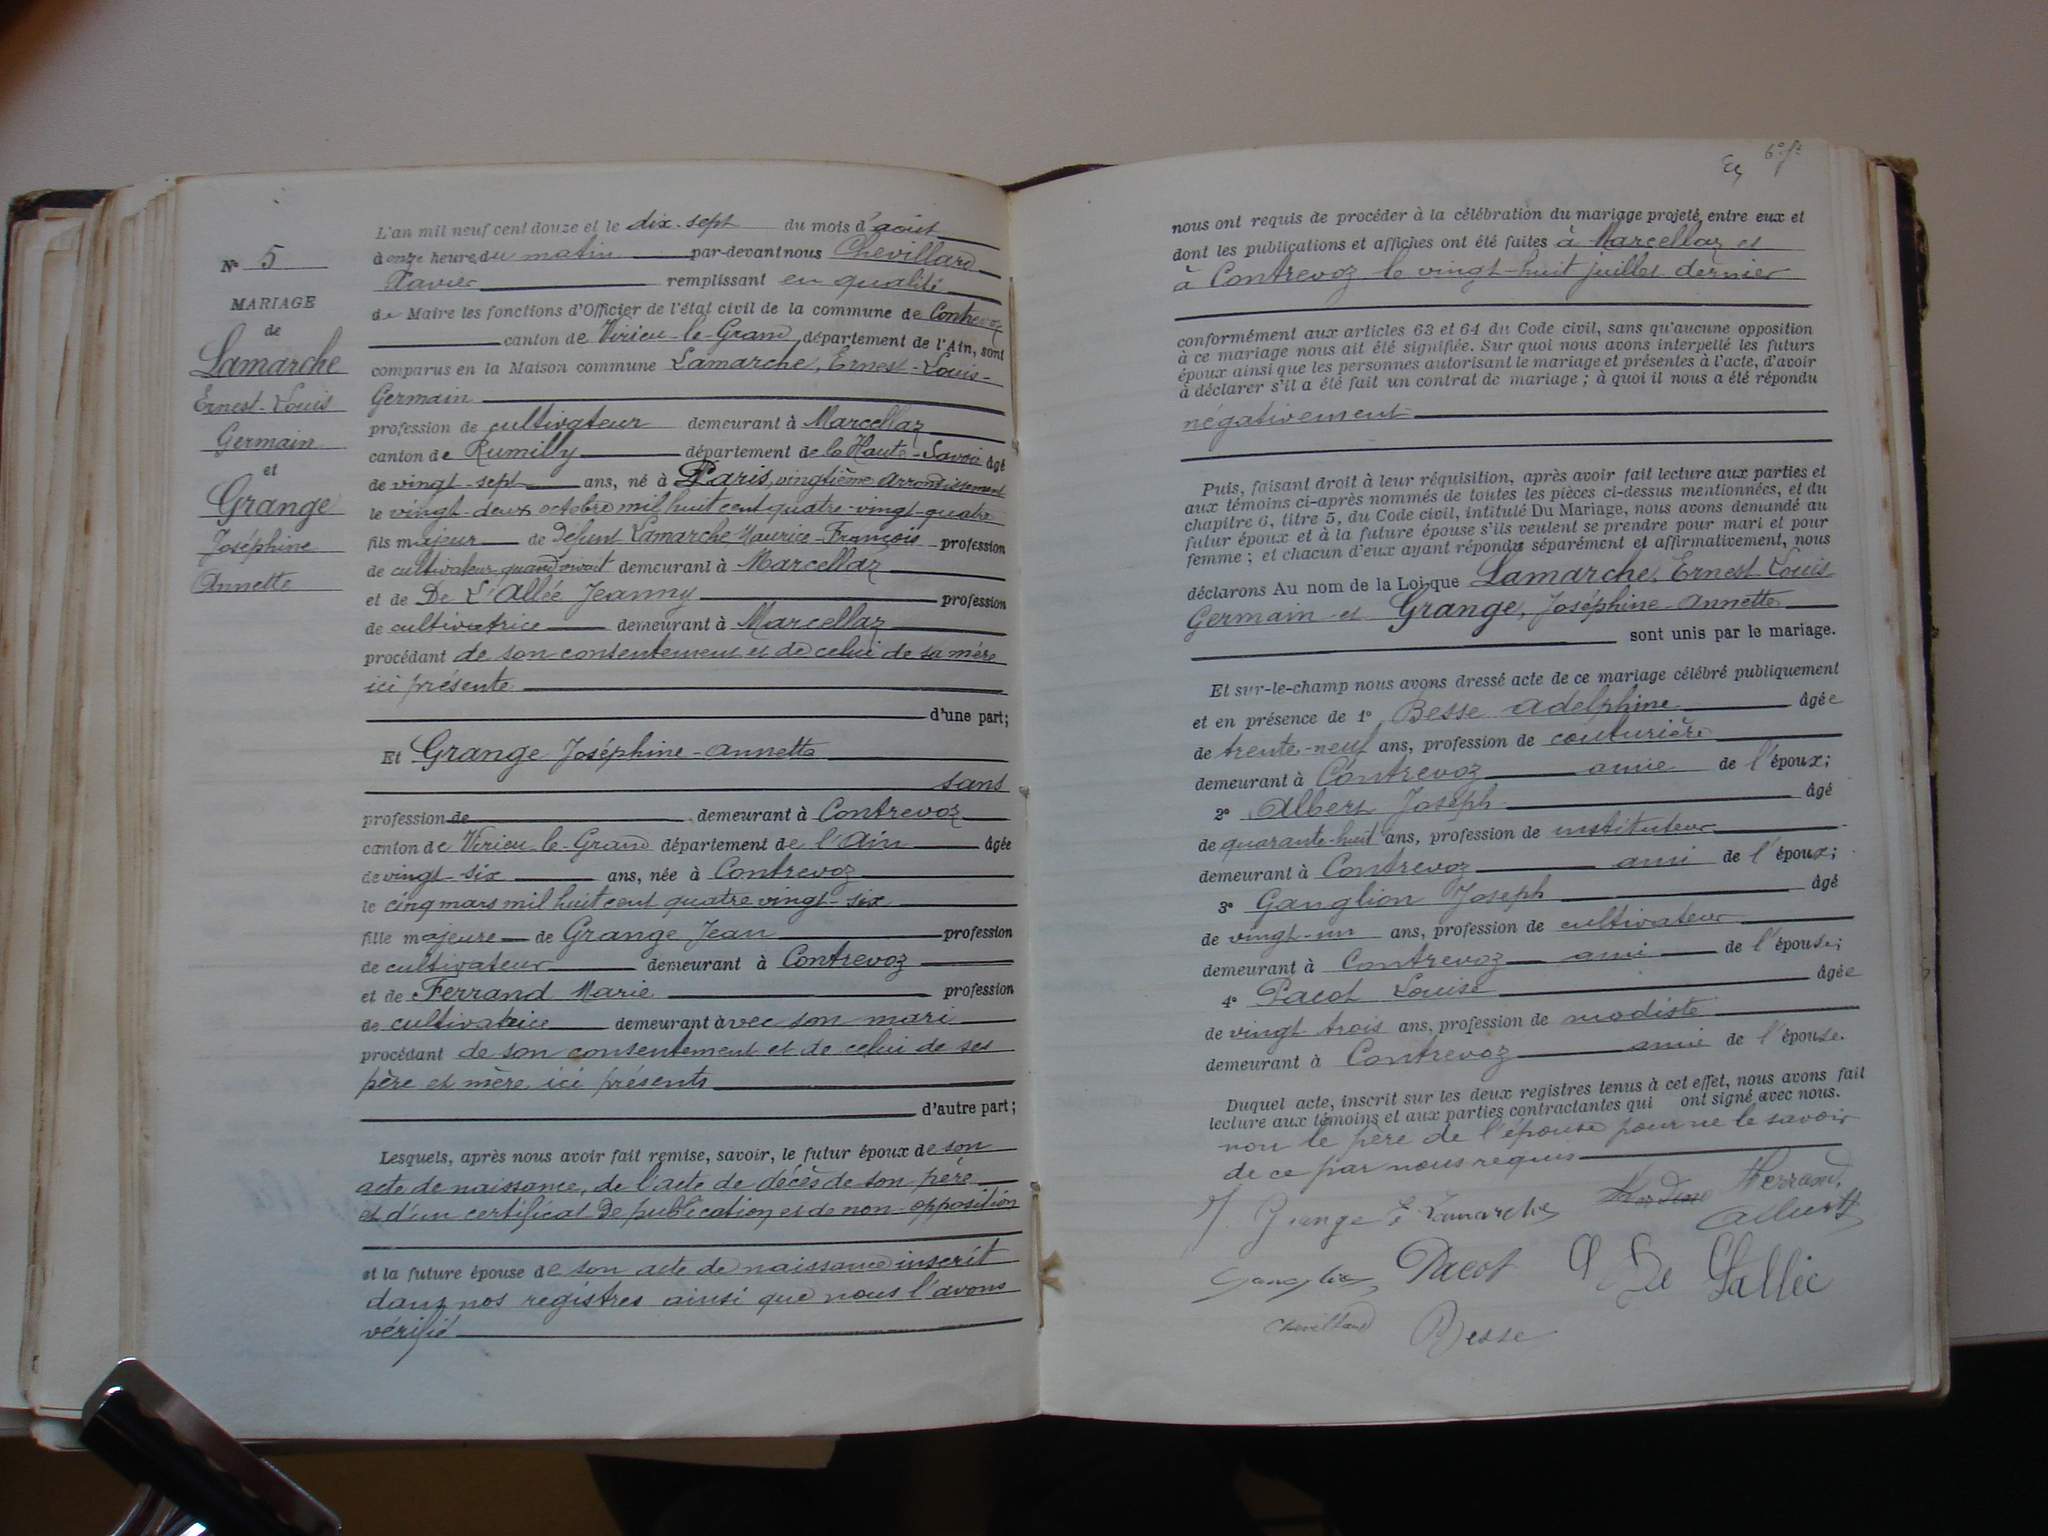 N° 5
MARIAGE
de
Lamarche
Ernest-Louis
Germain
et
Grange
Joséphine
Annette
L'an mil neuf cent douze et le dix-sept du mois d'août
à onze heures du matin par-devant nous Chevillard
Xavier remplissant en qualité
de Maire les fonctions d'Officier de l'état civil de la commune de Contrevoz
canton de Virieu-le-Grand, département de l'Ain, sont
comparus en la Maison commune Lamarche, Ernest-Louis-
Germain
profession de cultivateur demeurant à Marcellaz
canton de Rumilly département de la Haute-Savoie âgé
de vingt-sept ans, né à Paris, vingtième arrondissement
le vingt-deux octobre mil huit cent quatre-vingt-quatre
fils majeur de Défunt Lamarche Maurice-François profession
de cultivateur quand vivait demeurant à Marcellaz
et de De L'Allée Jeanny profession
de cultivatrice demeurant à Marcellaz
procédant de son consentement et de celui de sa mère
ici présente
d'une part;
Et Grange Joséphine-Annette
sans
profession de demeurant à Contrevoz
canton de Virieu-le-Grand département de l'Ain âgée
de vingt-six ans, née à Contrevoz
le cinq mars mil huit cent quatre vingt-six
fille majeure de Grange Jean profession
de cultivateur demeurant à Contrevoz
et de Ferrand Marie profession
de cultivatrice demeurant avec son mari
procédant de son consentement et de celui de ses
père et mère ici présents
d'autre part;
Lesquels, après nous avoir fait remise, savoir, le futur époux de son
acte de naissance, de l'acte de décès de son père
et d'un certificat de publication et de non-opposition
et la future épouse de son acte de naissance inscrit
dans nos registres ainsi que nous l'avons
vérifié
6° f°
nous ont requis de procéder à la célébration du mariage projeté entre eux et
dont les publications et affiches ont été faites à Marcellaz et
à Contrevoz le vingt-huit juillet dernier
conformément aux articles 63 et 64 du Code civil, sans qu'aucune opposition
à ce mariage nous ait été signifiée. Sur quoi nous avons interpellé les futurs
époux ainsi que les personnes autorisant le mariage et présentes à l'acte, d'avoir
à déclarer s'il a été fait un contrat de mariage; à quoi il nous a été répondu
négativement
Puis, faisant droit à leur réquisition, après avoir fait lecture aux parties et
aux témoins ci-après nommés de toutes les pièces ci-dessus mentionnées, et du
chapitre 6, titre 5, du Code civil, intitulé Du Mariage, nous avons demandé au
futur époux et à la future épouse s'ils veulent se prendre pour mari et pour
femme; et chacun d'eux ayant répondu séparément et affirmativement, nous
déclarons Au nom de la Loi, que Lamarche, Ernest Louis
Germain et Grange, Joséphine-Annette
sont unis par le mariage.
Et sur-le-champ nous avons dressé acte de ce mariage célébré publiquement
et en présence de 1° Besse Adelphine âgée
de trente-neuf ans, profession de couturière
demeurant à Contrevoz amie de l'époux;
2° Albert Joseph âgé
de quarante-huit ans, profession de instituteur
demeurant à Contrevoz ami de l'époux;
3° Ganglion Joseph âgé
de vingt-un ans, profession de cultivateur
demeurant à Contrevoz ami de l'épouse;
4° Pacot Louise âgée
de vingt trois ans, profession de modiste
demeurant à Contrevoz amie de l'épouse.
Duquel acte, inscrit sur les deux registres tenus à cet effet, nous avons fait
lecture aux témoins et aux parties contractantes qui ont signé avec nous.
non le père de l'épouse pour ne le savoir
de ce par nous requis
J. Grange E Lamarche Ferrand
Albert
Ganglion Pacot De Lallée
Chevillard Besse